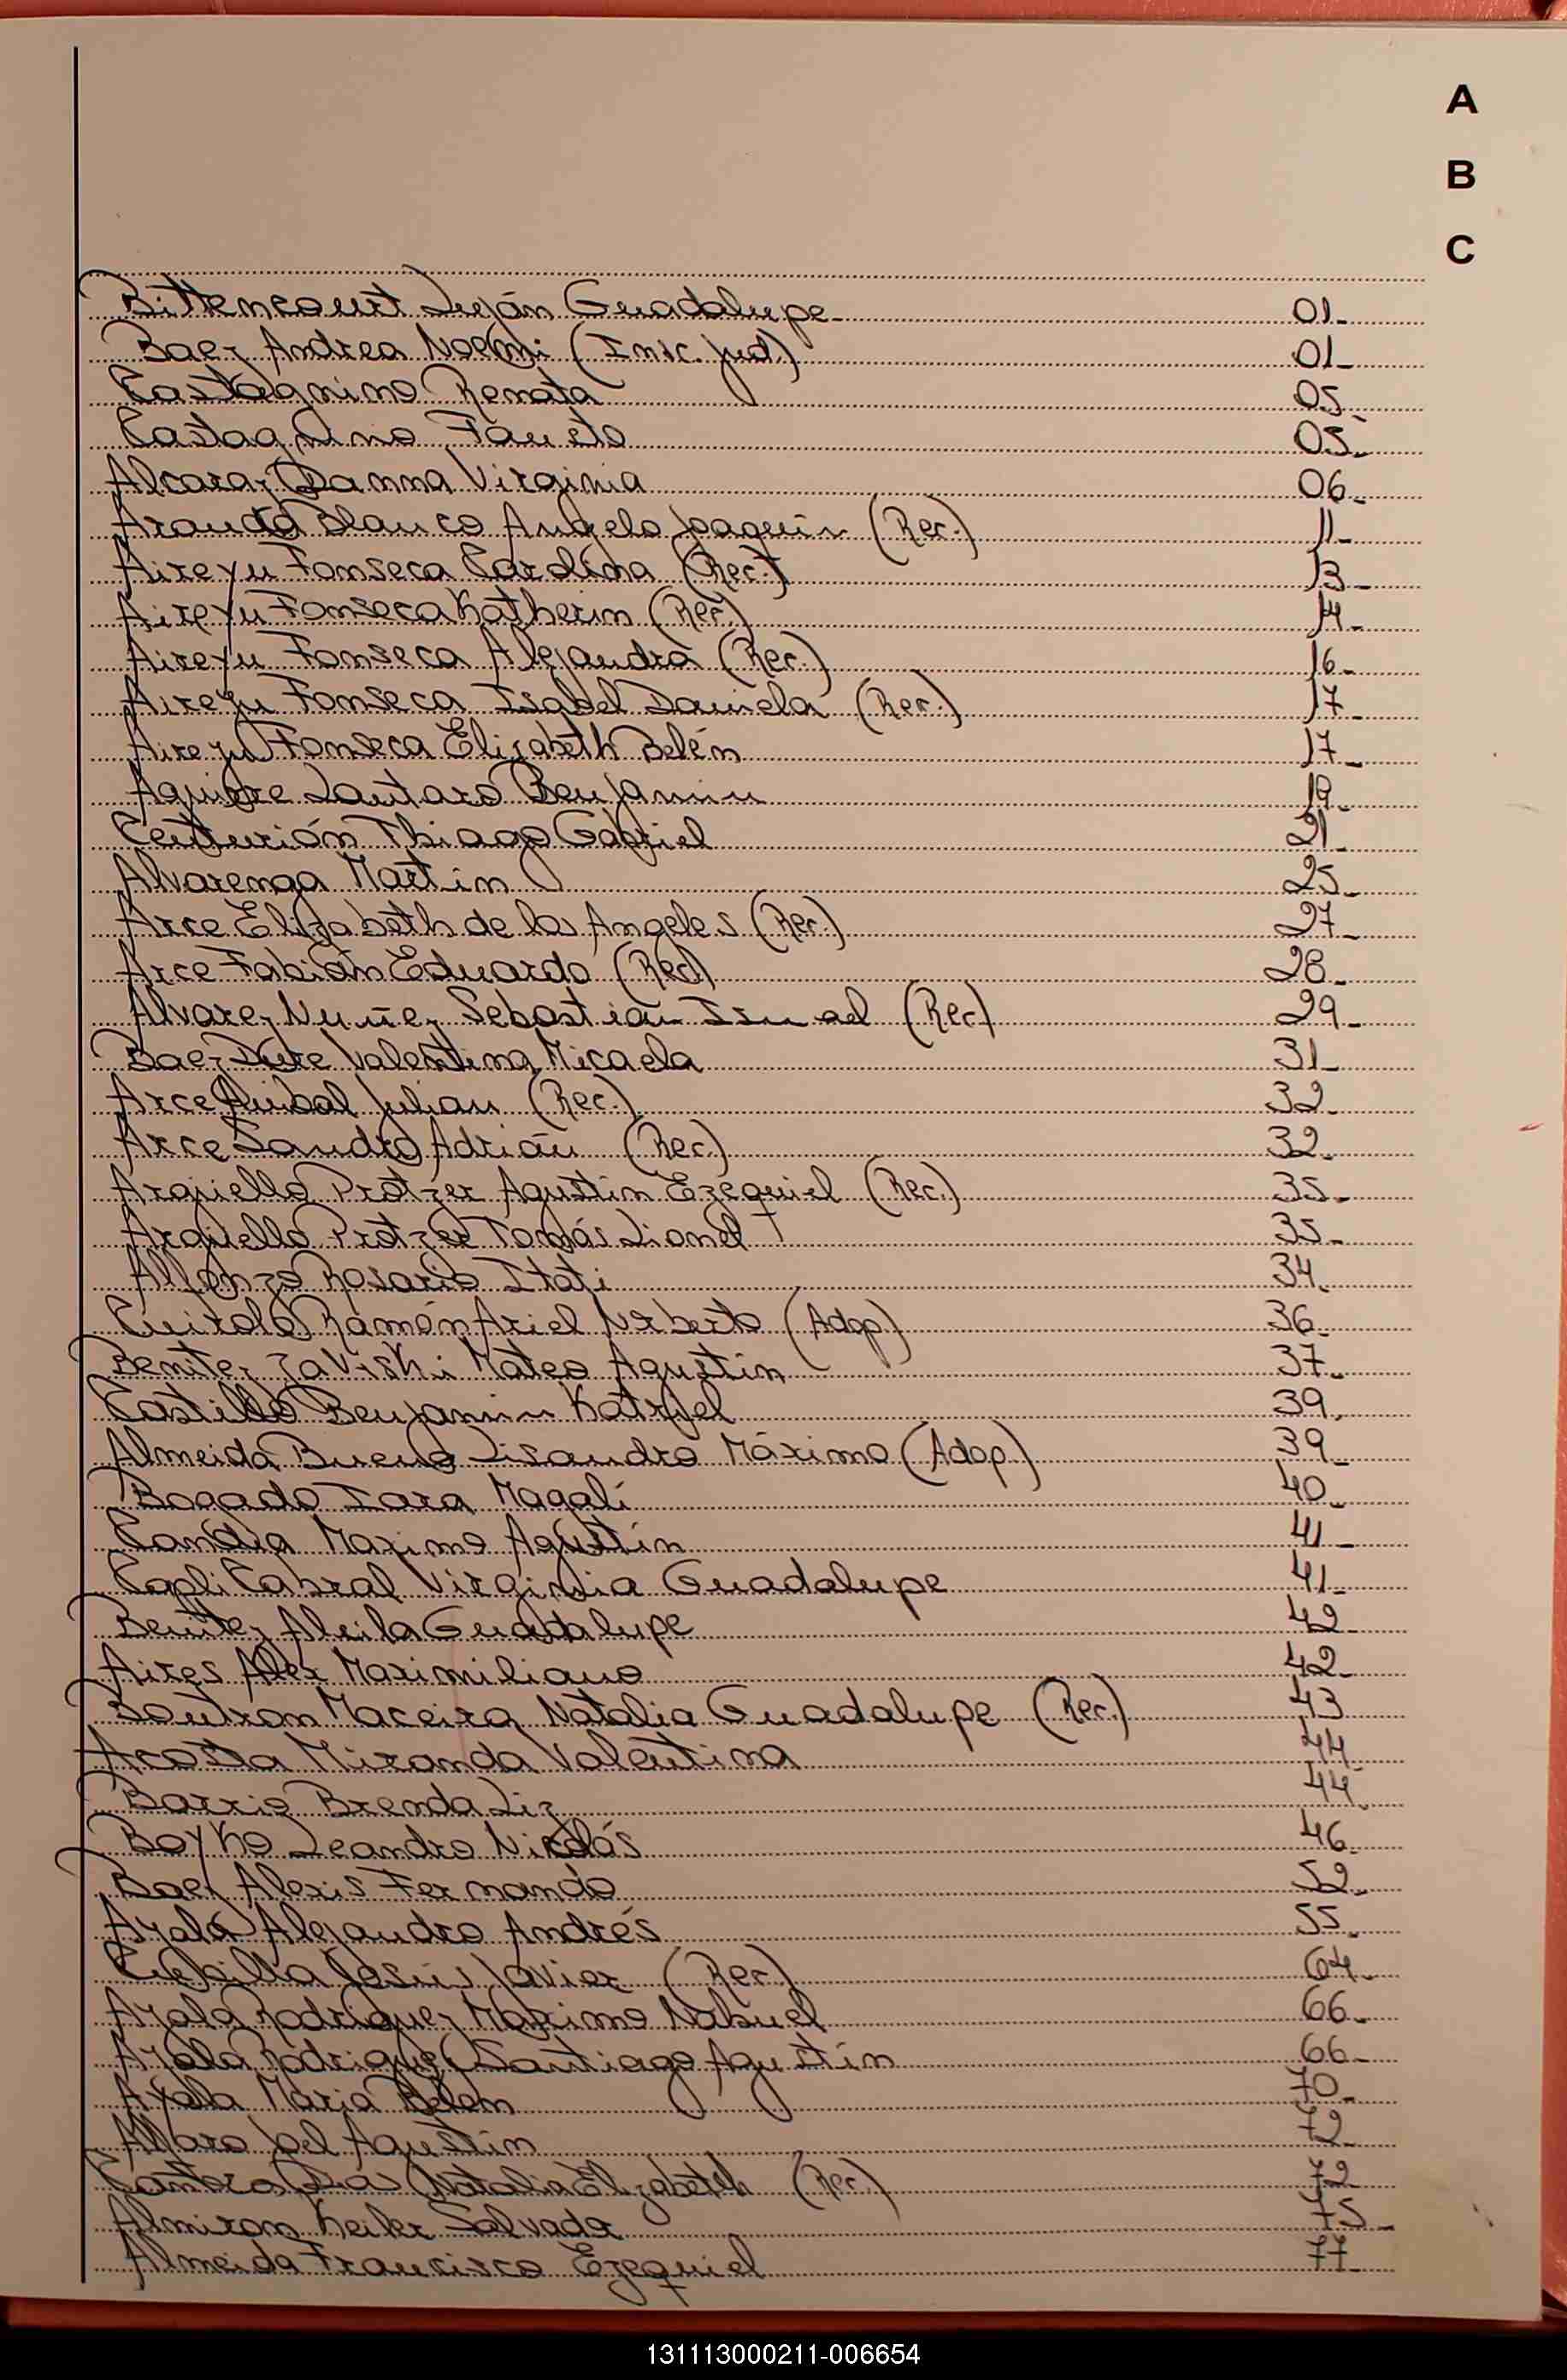 A
B
C
Bittencourt Luján Guadalupe 01.
Baez Andrea Noemi (Insc. jud.) 01
Castagnino Renata 05
Castagnino Fausto 05.
Alcaraz Danna Virginia 06.
Aranda Blanco Angelo Joaquín (Rec.) 11
Aireyu Fonseca Carolina (Rec.) 13
Aireyu Fonseca Katherin (Rec.) 14
Aireyu Fonseca Alejandra (Rec.) 16
Aireyu Fonseca Isabel Daniela (Rec.) 17
Aireyu Fonseca Elizabeth Belén 17
Aguirre Lautaro Benjamin 19
Centurión Thiago Gabriel 21
Alvarenga Martin 25
Arce Elizabeth de los Angeles (Rec.) 27
Arce Fabián Eduardo (Rec.) 28
Alvarez Nuñez Sebastian Ismael (Rec.) 29
Baez Dure Valentina Micaela 31
Arce Anibal Julian (Rec.) 32
Arce Sandro Adrián (Rec.) 32
Argüello Protzer Agustin Ezequiel (Rec.) 35
Argüello Protzer Tomás Lionel 35
Alfonzo Rosario Itati 34
Ramón Ariel Norberto (Adop) 36
Benitez Zaviski Mateo Agustin 37
Castillo Benjamin Katriel 39
Almeida Bueno Lisandro Máximo (Adop.) 39
Bogado Iara Magali 40
Candia Maximo Agustin 41
Capli Cabral Virginia Guadalupe 41
Benitez Guadalupe 42
Aires Alex Maximiliano 42
Boutron Maceira Natalia Guadalupe (Rec.) 43
Acosta Miranda Valentina 44
Barrio Brenda Liz 44
Boyko Leandro Nicolás 46
Baez Alexis Fernando 52
Ayala Alejandro Andrés 55
Cubilla Jesús Javier (Rec.) 64
Ayala Rodriguez Maximo Nahuel 66
Ayala Rodriguez Santiago Agustín 66
Ayala Maria Belen 70
Alfaro Joel Agustin 72
Das Natalia Elizabeth (Rec.) 72
Almiron Keiler Salvador 75
Almeida Francisco Ezequiel 77
131113000211-006654